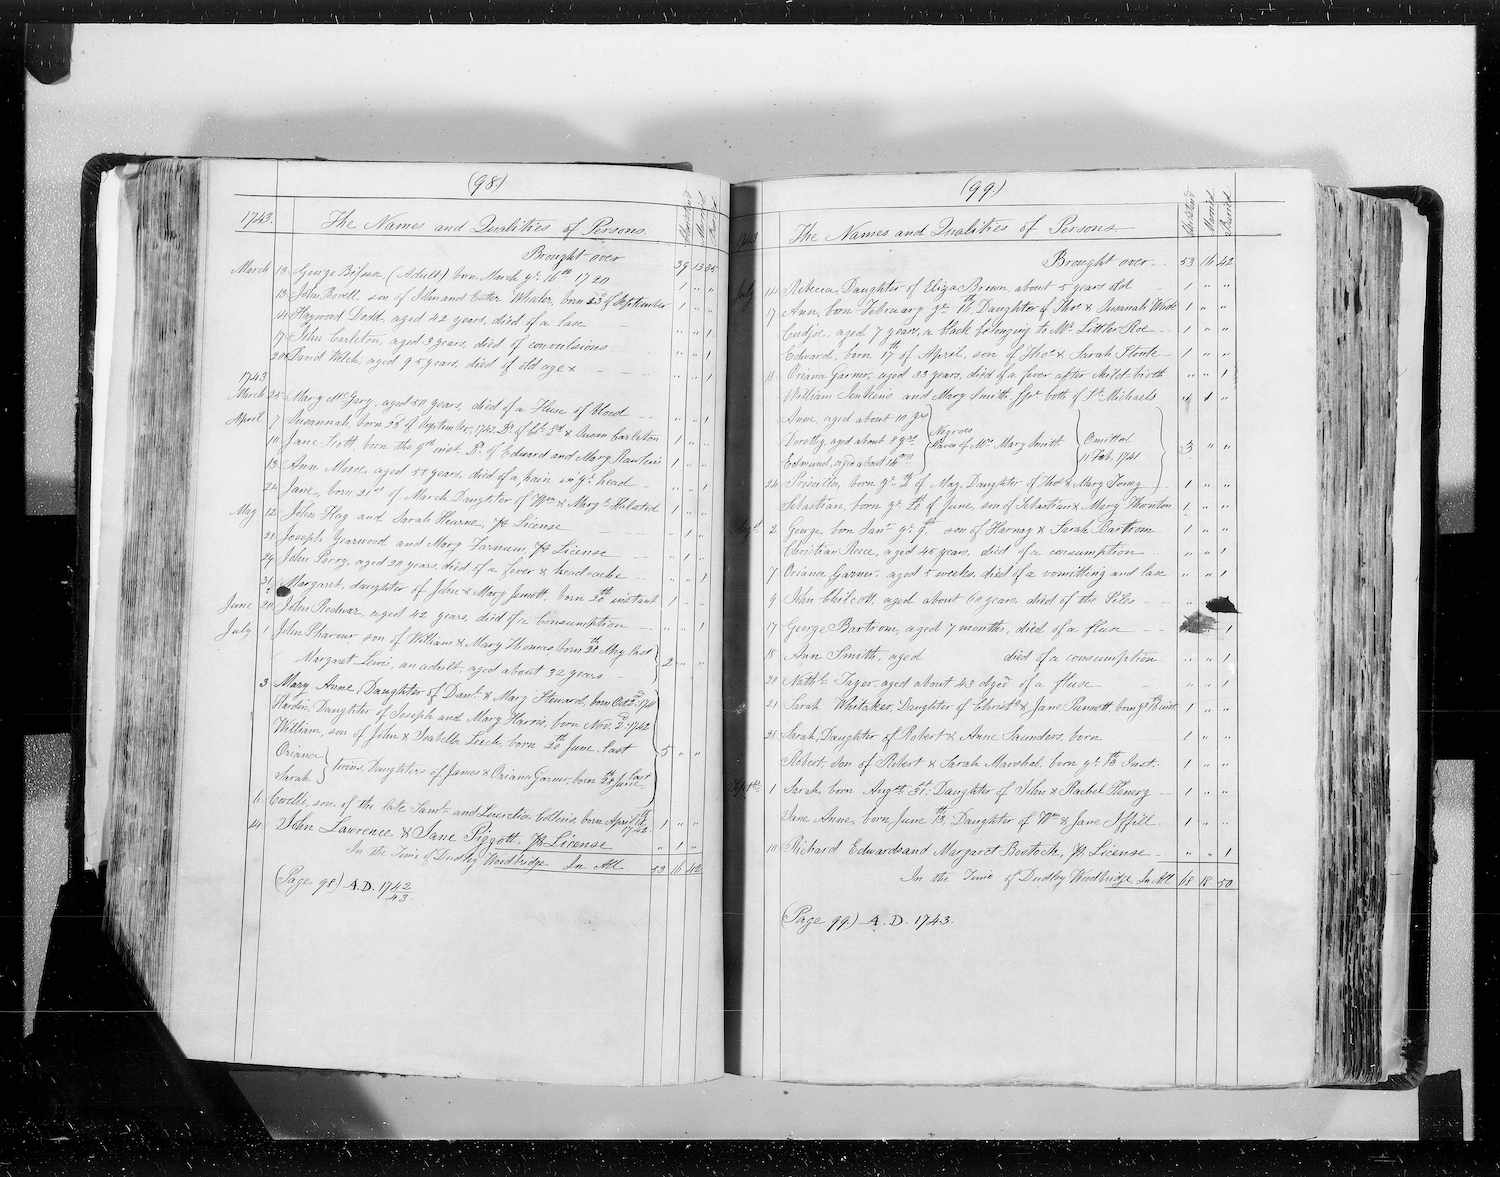 (98)
1743. The Names and Qualities of Persons. Christen'd Married Buried
Brought over 39 13 35
March 13 George (Adult) born March ye 16th 1720 1 " "
13 John Rovell son of John and Ester Wheeler, born 23 of September 1 " "
14 Haywood Dodd, aged 42 years, died of a " " 1
17 John Carleton, aged 3 years, died of convulsions " " 1
20 David Welch, aged 95 years, died of old age " " 1
1743
March 25 Mary McGery, aged 50 years, died of a Fluse of blood " " 1
April 7 Susannah, born 28 of September, 1742 Dr of & Susan Carleton 1 " "
10 Jane Scott, born the 9th inst. Dr. of Edward and Mary Rawlins 1 " "
13 Ann Mence, aged 54 years, died of a pain in ye head " " 1
24 Jane, born 21st of March Daughter of Wm & Mary Halsted 1 " "
May 12 John Flog and Sarah Hearne, Pr License " 1 "
21 Joseph Yearwood and Mary Farnum, Pr License " 1 "
29 John Perry, aged 20 years, died of a fever & headache " " 1
31 Margaret, daughter of John & Mary Jemott born 20th instant 1 " "
June 20 John Redwar, aged 42 years, died of a consumption " " 1
July 1 John Pharour son of William & Mary Thomas born 28th May last
Margaret Lewis, an adult, aged about 32 years 2 " "
3 Mary Anne, Daughter of Danl. & Mary Steward, born Oct 2nd 1740
Harden, Daughter of Joseph and Mary Harris, born Nov. 2nd 1742
William, son of John & Isabella Leech, born 20th June last 5 " "
Oriana
Sarah twins, Daughters of James & Oriana Garner, born 28th June last
6 Cwells, son of the late Saml. and Lucretia Collins, born April 1742 1 " "
14 John Lawrence & Jane Piggott, Pr License " 1 "
In the Time of Dudley Woodbridge In All 53 16 42
(Page 98) A.D. 1742/43
(99)
1743 The Names and Qualities of Persons Christen'd Married Buried
Brought over 53 16 42
July 14 Rebecca, Daughter of Eliza Brown, about 5 years old 1 " "
17 Ann, born February ye Daughter of Thos. & Susanah Wade 1 " "
Cudjoe, aged 7 years, a black belonging to Mr. Littler Roe 1 " "
Edward, born 17th of April, son of Thos. & Sarah Stoute 1 " "
18 Oriana Garner, aged 33 years, died of a fever after Mild-birth " " 1
William Jenkins and Mary Smith, Spr. both of St. Michaels " 1 "
Anne, aged about 10 yrs
Dorothy, aged about 8 yrs Negroes Slaves of Mrs Mary Smith Omitted 11 Feb. 1741 3 " "
Edmund, aged about 16 ms
24 Priscilla, born ye 2d of May, Daughter of Thos. & Mary Tovey 1 " "
Sebastian, born ye 26 of June, son of Sebastian & Mary Thornton 1 " "
Augt 2 George, born Jany. ye 9th, son of Harnay & Sarah Bartrom 1 " "
Christian Rece, aged 45 years, died of a consumption " " 1
7 Oriana Garner, aged 5 weeks, died of a vomitting and lase " " 1
9 John Chilcott, aged about 60 years, died of the Piles "
17 George Bartrom, aged 7 months, died of a fluse 1
18 Ann Smith, aged died of a consumption " " 1
20 Nathl. Tazer, aged about 43 dyed of a fluse " " 1
21 Sarah Whitaker, Daughter of Christo. & Jane Jumott born ye 18 inst 1 " "
25 Sarah, Daughter of Robert & Anne Saunders, born 1 " "
Robert, son of Robert & Sarah Marshal, born ye 18th Inst. 1 " "
Septr 1 Sarah born Augth 31st Daughter of John & Rachel Henery 1 " "
Jane Anne, born June 18, Daughter of Wm & Jane Iffill 1 " "
10 Richard Edwards and Margaret Bostock, Pr License " " 1
In the Time of Dudley Woodbridge In All 68 18 50
(Page 99) A.D. 1743.